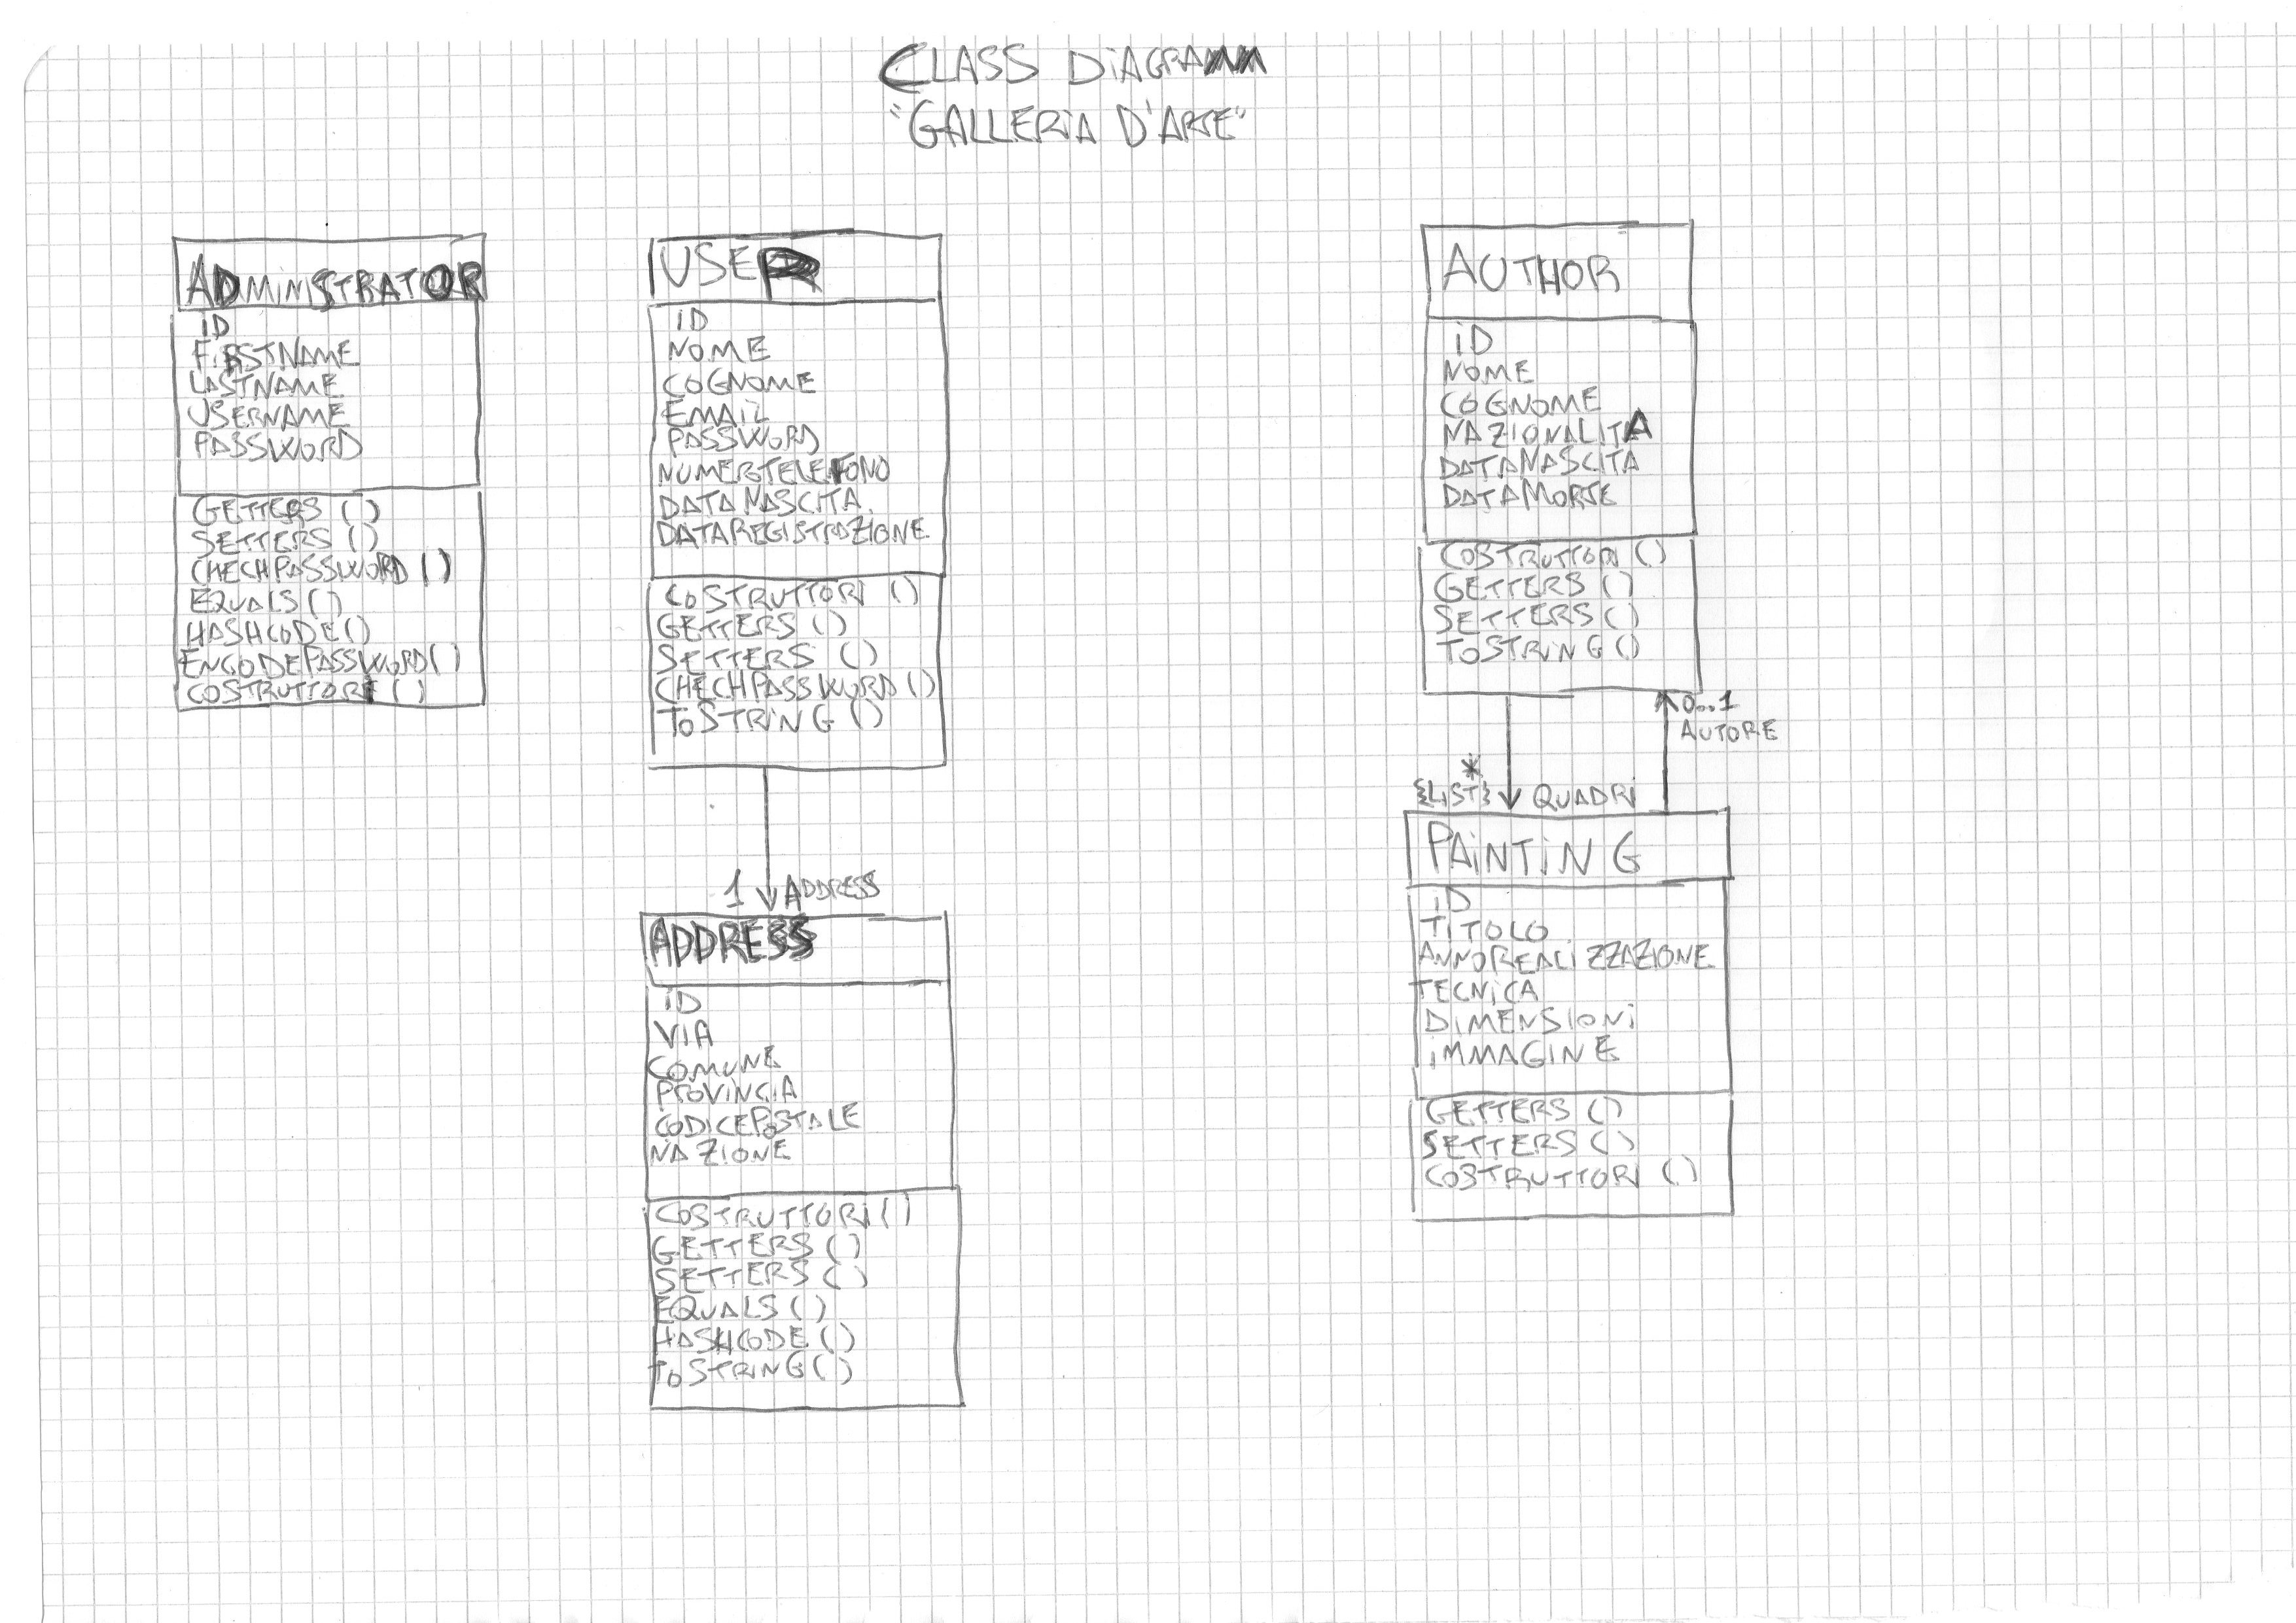 CLASS DIAGRAMM
"GALLERIA D'ARTE"
ADMINISTRATOR
ID
FIRSTNAME
LASTNAME
USERNAME
PASSWORD
GETTERS ()
SETTERS ()
CHECHPASSWORD ()
EQUALS ()
HASHCODE ()
ENCODEPASSWORD ()
COSTRUTTORI ()
USER
ID
NOME
COGNOME
EMAIL
PASSWORD
NUMEROTELEFONO
DATANASCITA
DATAREGISTRAZIONE
COSTRUTTORI ()
GETTERS ()
SETTERS ()
CHECHPASSWORD ()
TOSTRING ()
1 ADDRESS
ADDRESS
ID
VIA
COMUNE
PROVINCIA
CODICEPOSTALE
NAZIONE
COSTRUTTORI ()
GETTERS ()
SETTERS ()
EQUALS ()
HASHCODE ()
TOSTRING ()
AUTHOR
ID
NOME
COGNOME
NAZIONALITA
DATANASCITA
DATAMORTE
COSTRUTTORI ()
GETTERS ()
SETTERS ()
TOSTRING ()
0..1
AUTORE
*
{LIST} QUADRI
PAINTING
ID
TITOLO
ANNOREALIZZAZIONE
TECNICA
DIMENSIONI
IMMAGINE
GETTERS ()
SETTERS ()
COSTRUTTORI ()